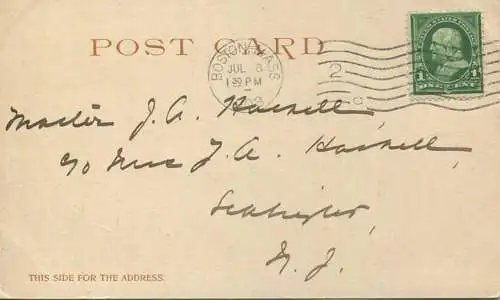 POST CARD
BOSTON, MASS
JUL 8
1 PM
2
1 ONE CENT 1
Master J. A. Haskell,
c/o Mrs J. A. Haskell,
N. J.
THIS SIDE FOR THE ADDRESS.